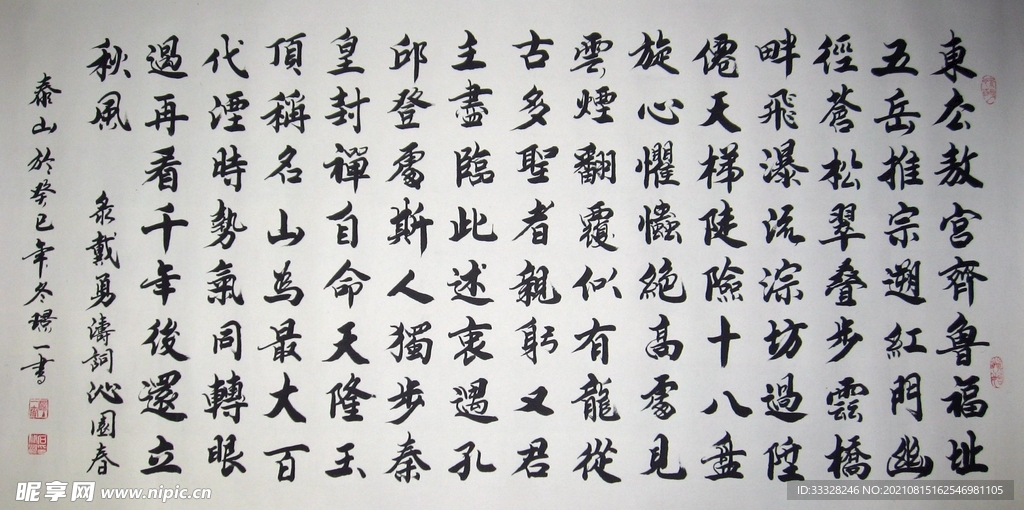 東去敖宮齊魯福址
五岳推宗遡紅門幽
徑蒼松翠疊步雲橋
畔飛瀑流淙坊過陞
僊天梯陡險十八盤
旋心懼絕高處見
雲煙翻覆似有龍從
古多聖者親躬又君
主盡臨此述衷遇孔
邱登處斯人獨步秦
皇封禪自命天隆玉
頂稱名山為最大百
代湮時勢氣同轉眼
過再看千年後還立
秋風
彔戴勇濤詞沁園春
泰山於癸巳年冬一書
昵享网 www.nipic.cn
ID:33328246 NO:20210815162546981105